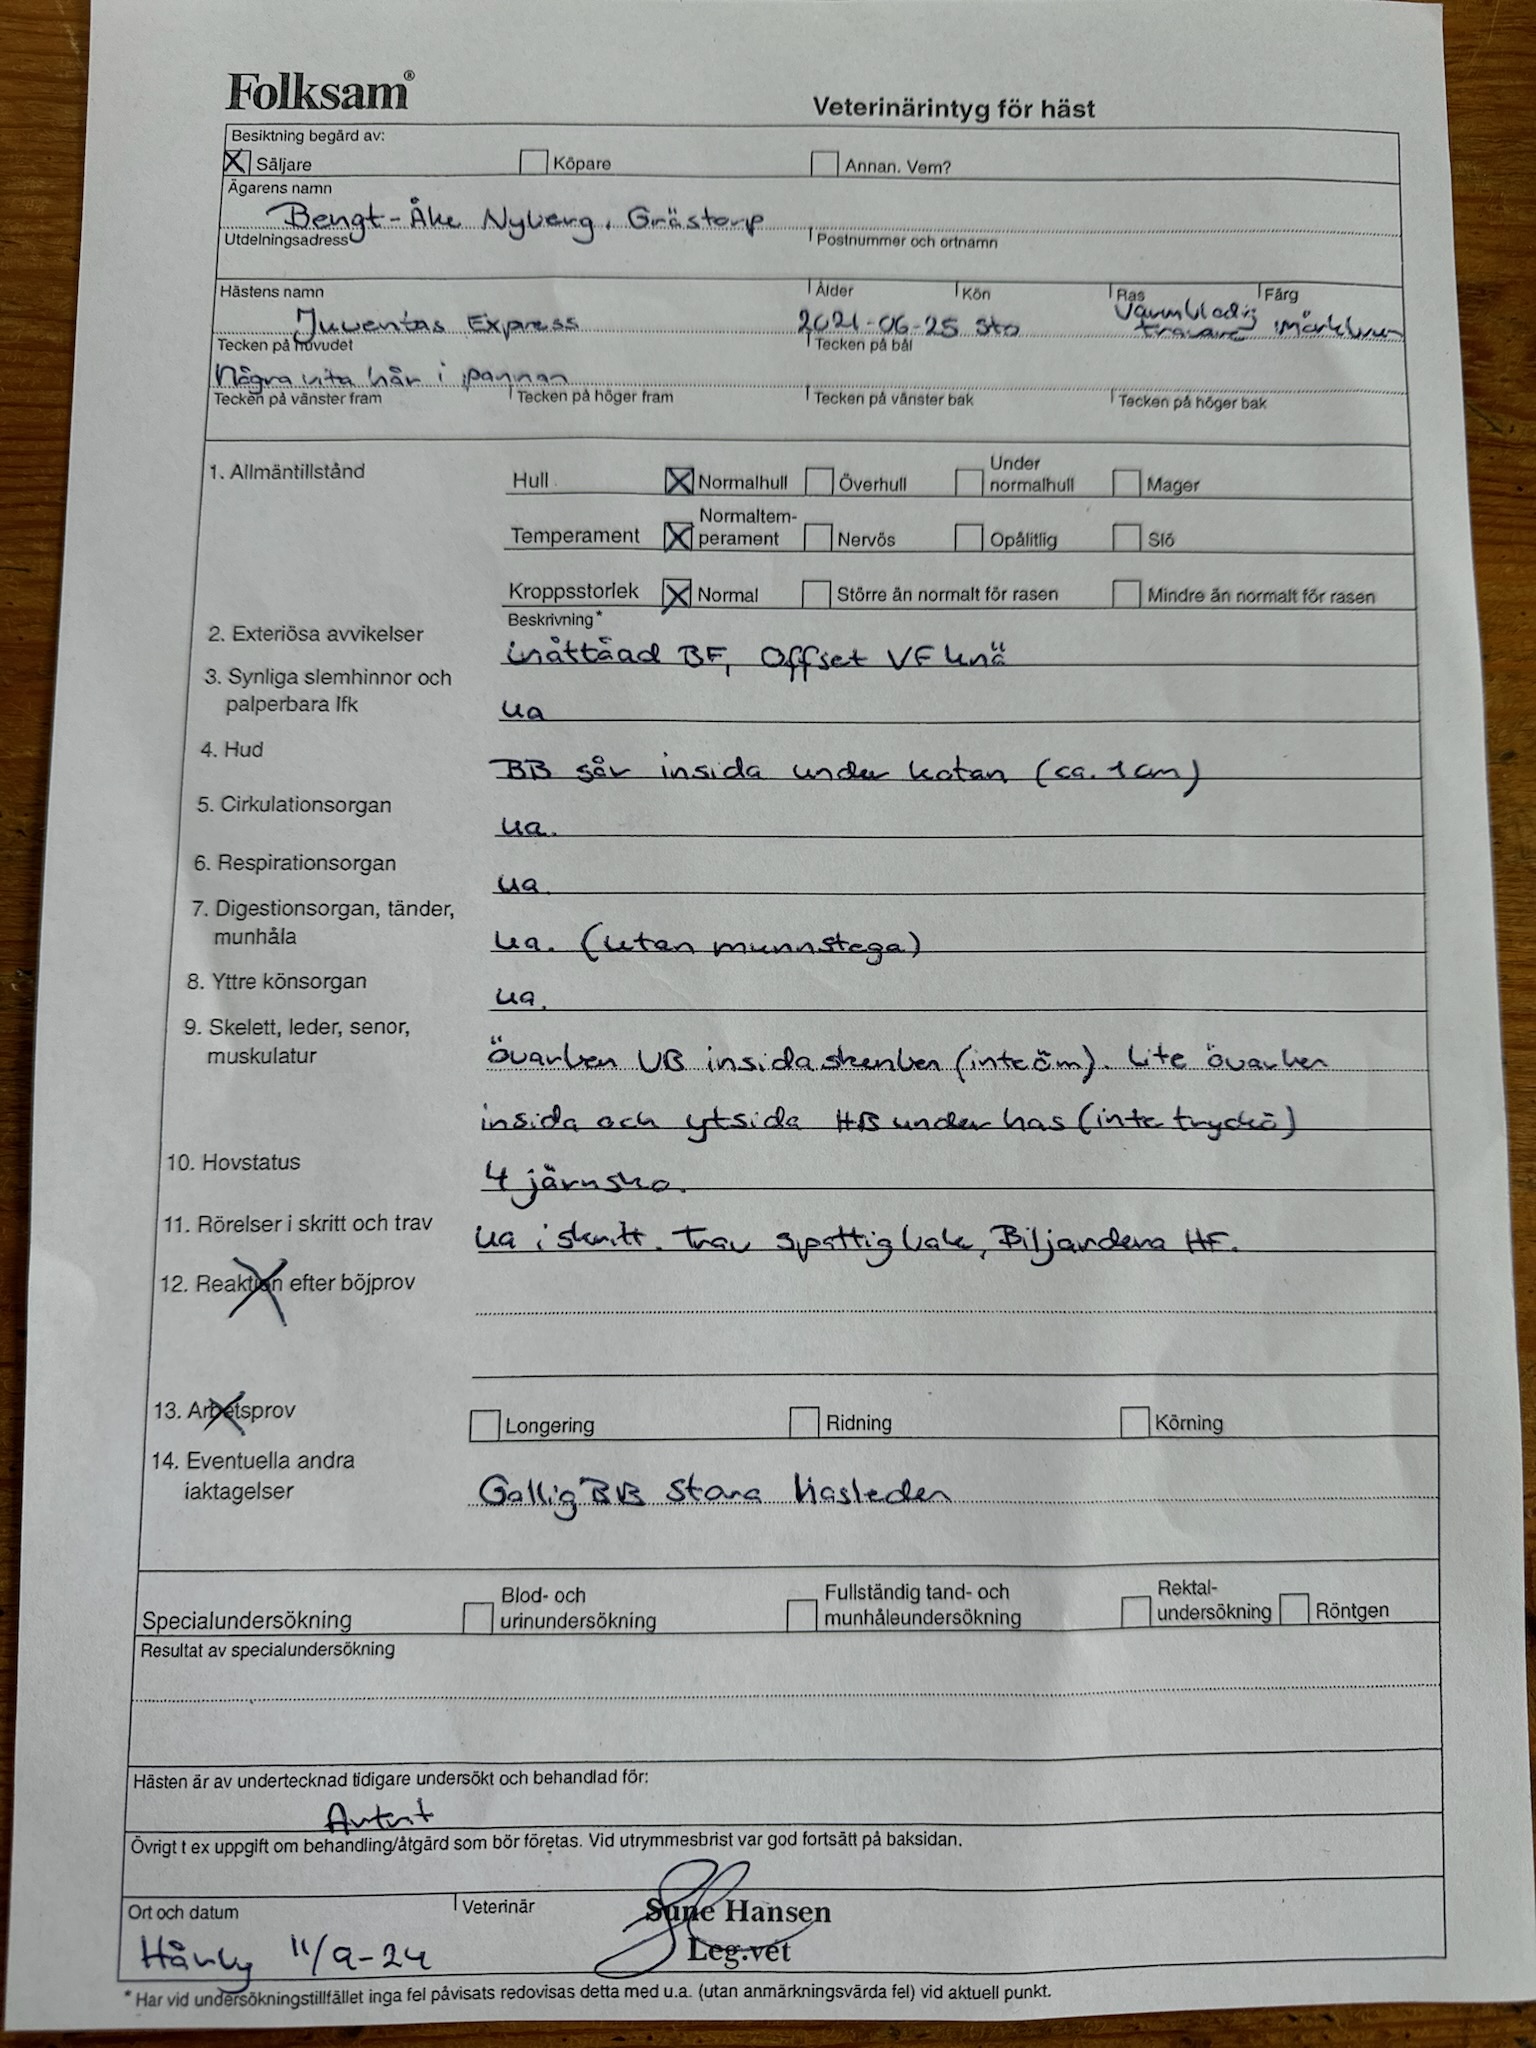 Folksam®
Veterinärintyg för häst
Besiktning begärd av:
X Säljare Köpare Annan. Vem?
Ägarens namn
Bengt-Åke Nyberg, Grästorp
Utdelningsadress Postnummer och ortnamn
Hästens namn Ålder Kön Ras Färg
Juventas Express 2021-06-25 Sto Varmblodig travare mörkbrun
Tecken på huvudet Tecken på bål
Några vita hår i pannan
Tecken på vänster fram Tecken på höger fram Tecken på vänster bak Tecken på höger bak
1. Allmäntillstånd
Hull X Normalhull Överhull Under normalhull Mager
Temperament X Normaltem-perament Nervös Opålitlig Slö
Kroppsstorlek X Normal Större än normalt för rasen Mindre än normalt för rasen
Beskrivning*
2. Exteriösa avvikelser inåttåad BF, Offset VF knä
3. Synliga slemhinnor och
palperbara lfk ua
4. Hud BB sår insida under kotan (ca. 1 cm)
5. Cirkulationsorgan ua.
6. Respirationsorgan ua.
7. Digestionsorgan, tänder,
munhåla ua. (utan munnstega)
8. Yttre könsorgan ua.
9. Skelett, leder, senor,
muskulatur överben VB insida skenben (inte öm). Lite överben
insida och ytsida HB under has (inte tryckö)
10. Hovstatus 4 järnsko.
11. Rörelser i skritt och trav ua i skritt. Trav spattig bak, Biljardera HF.
12. Reaktion efter böjprov
13. Arbetsprov Longering Ridning Körning
14. Eventuella andra
iaktagelser Gallig BB stora hasleden
Specialundersökning Blod- och urinundersökning Fullständig tand- och munhåleundersökning Rektal-undersökning Röntgen
Resultat av specialundersökning
Hästen är av undertecknad tidigare undersökt och behandlad för:
Övrigt t ex uppgift om behandling/åtgärd som bör företas. Vid utrymmesbrist var god fortsätt på baksidan.
Ort och datum Veterinär
11/9-24
Sune Hansen
Leg.vet
* Har vid undersökningstillfället inga fel påvisats redovisas detta med u.a. (utan anmärkningsvärda fel) vid aktuell punkt.